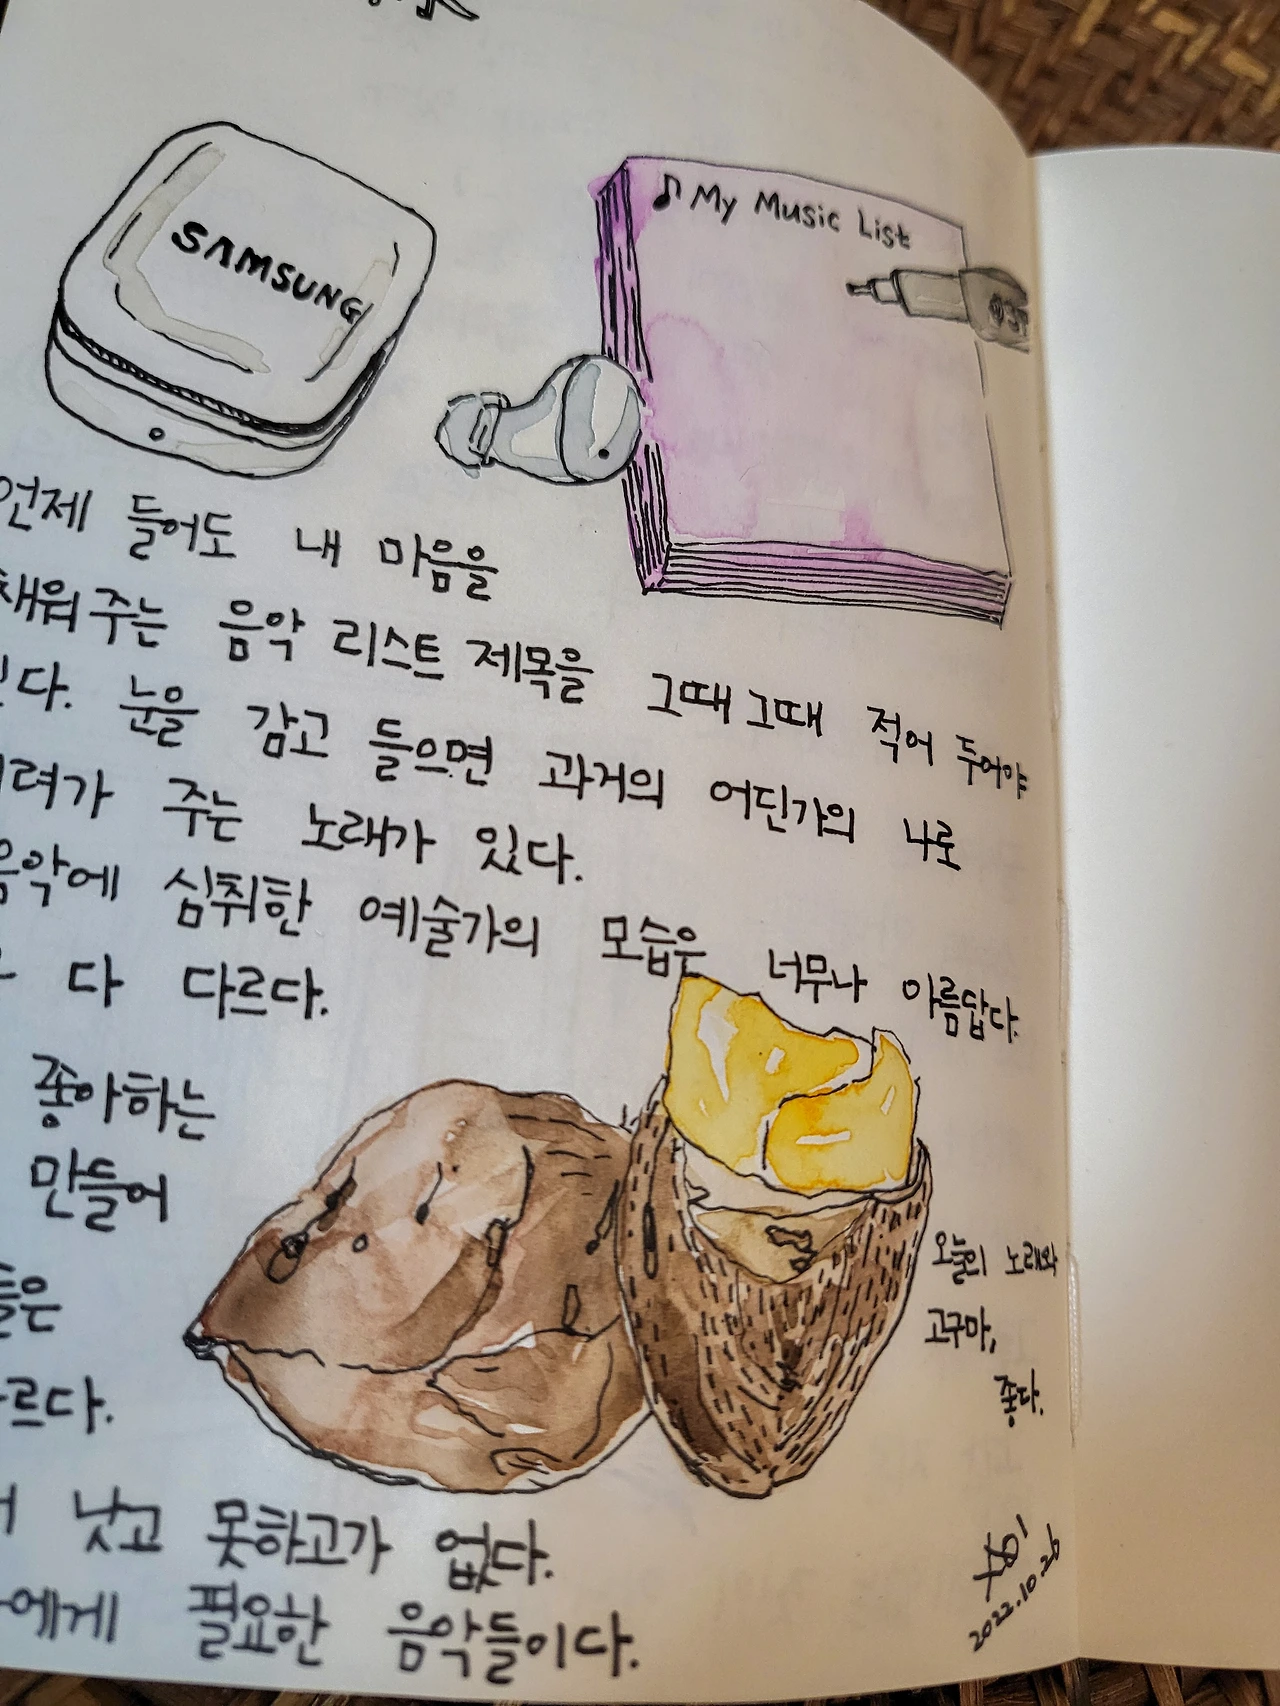 SAMSUNG
♪ My Music List
언제 들어도 내 마음을
채워 주는 음악 리스트 제목을 그때 그때 적어 두어야
다. 눈을 감고 들으면 과거의 어딘가의 나로
려가 주는 노래가 있다.
음악에 심취한 예술가의 모습은 너무나 아름답다.
다 다르다.
좋아하는
만들어
들은
르다.
오늘의 노래와
고구마,
좋다.
낫고 못하고가 없다.
에게 필요한 음악들이다.
2022.10.26